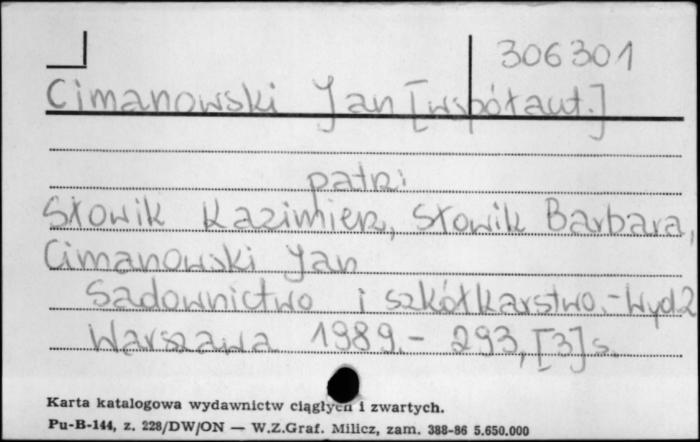 306301
Cimanowski Jan [współaut.]
patrz:
Słowik Kazimierz, Słowik Barbara,
Cimanowski Jan
Sadownictwo i szkółkarstwo.- Wyd 2
Warszawa 1989.- 293, [3] s.
Karta katalogowa wydawnictw ciągłych i zwartych.
Pu-B-144, z. 228/DW/ON — W.Z.Graf. Milicz, zam. 388-86 5.650.000